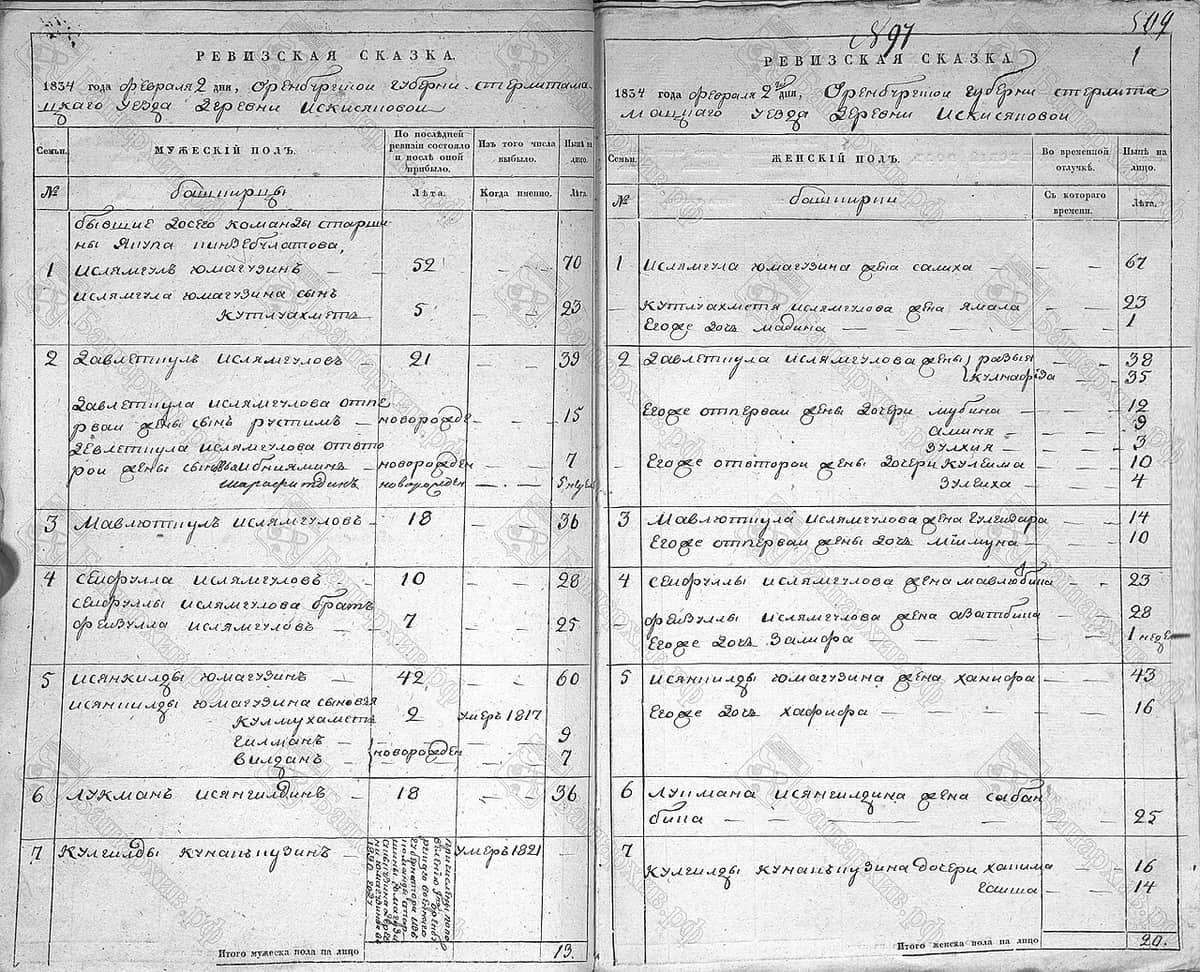 РЕВИЗСКАЯ СКАЗКА.
1834 года февраля 2 дни, Оренбургской губерни стерлитама
цкаго уезда деревни искисяповой
Семьи. МУЖЕСКІЙ ПОЛЪ. По послѣдней ревизіи состояло и послѣ оной прибыло. Изъ того числа выбыло. Нынѣ на лицо.
№ башкирцы Лѣта. Когда именно. Лѣта.
бывшие досего команды старши
ны Якупа
1 ислямгулъ юмагузинъ 52 70
ислямгула юмагузина сынъ
кутлуахметъ 5 23
2 Давлеткулъ ислямгуловъ 21 39
Давлеткула ислямгулова отпе
рвай жены сынъ рустимъ новорожде 15
Девлеткула ислямгулова отвто
рой жены сыновья ибнияминъ новорожден 7
шарафитдинъ новорожден 5 недел
3 Мавлюткулъ ислямгуловъ 18 36
4 сейфулла ислямгуловъ 10 28
сейфуллы ислямгулова братъ
фейзулла ислямгуловъ 7 25
5 исянкилды юмагузинъ 42 60
исянкилды юмагузина сыновья
кулмухаметъ 2 умеръ 1817
гилманъ 9
вилданъ новорожден 7
6 лукманъ исянгилдинъ 18 36
7 кулгилды кунаккузинъ умеръ 1821
Итого мужеска пола на лицо 13.
№ 97
509
1
РЕВИЗСКАЯ СКАЗКА
1834 года февраля 2го дни, Оренбургской губерни стерлита
мацкаго уезда деревни искисяповой
Семьи. ЖЕНСКІЙ ПОЛЪ. Во временной отлучкѣ. Нынѣ на лицо.
№ башкирки Съ котораго времени. Лѣта.
1 ислямгула юмагузина жена салиха 67
кутлуахметя ислямгулова жена ямала 23
Егоже дочь мадина 1
2 Давлеткула ислямгулова жены разыя 38
35
Егоже отпервай жены дочери мубина 12
алмия 9
зулхия 3
Егоже отвторой жены дочери кулсима 10
зулеиха 4
3 Мавлюткула ислямгулова жена гулсидара 14
Егоже отпервай жены дочь мăимуна 10
4 сейфуллы ислямгулова жена мавлюбика 23
фейзуллы ислямгулова жена азатбика 28
Егоже дочь залифа 1 недел
5 исянкилды юмагузина жена ханифа 43
Егоже дочь хафифа 16
6 лукмана исянгилдина жена сабан
бика 25
7 кулгилды кунаккузина дочери хакима 16
гайша 14
Итого женска пола на лицо 20.
Башархив.рф